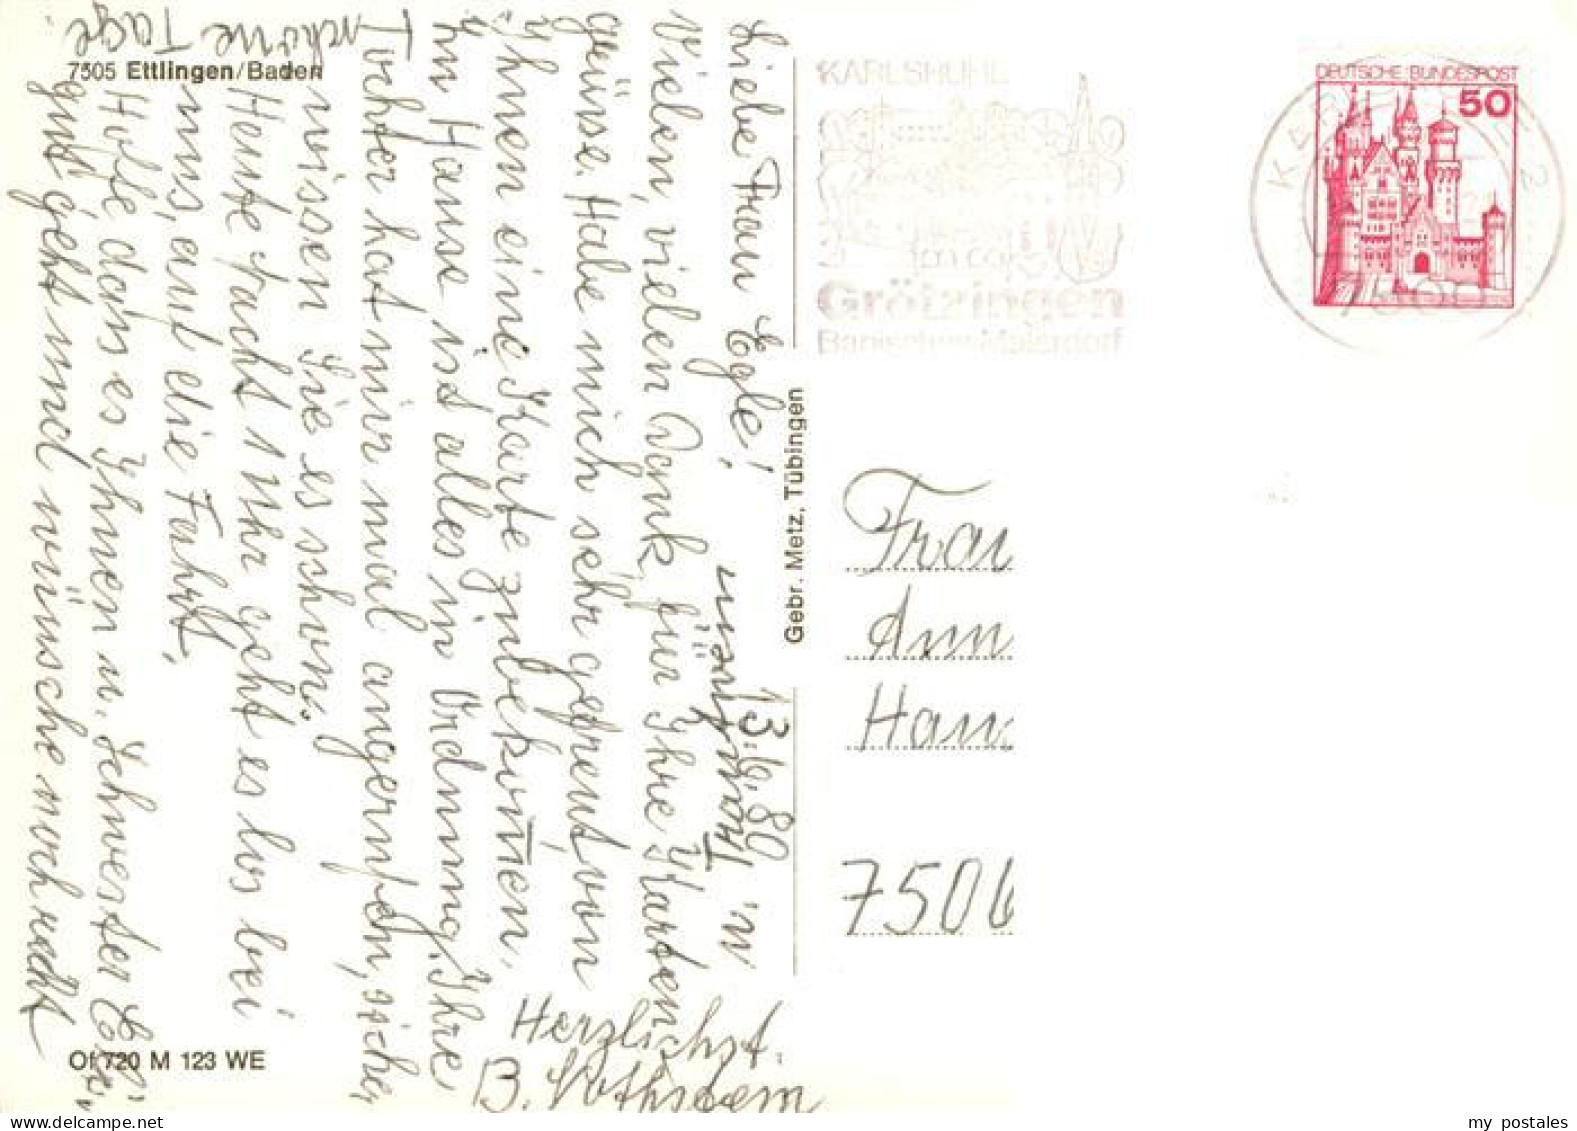 7505 Ettlingen/Baden
13.6.80
Liebe Frau Egle!
Vielen, vielen Dank für Ihre Karten
grüsse. Habe mich sehr gefreut von
Ihnen eine Karte zu bekom̄en.
Im Hause ist alles in Ordnung. Ihre
Tochter hat mir mal angerufen, sicher
wissen Sie es schon.
Heute Nacht 1 Uhr geht es los bei
uns, auf die Fahrt.
Hoffe dass es Ihnen u. Schwester
gut geht und wünsche noch recht
schöne Tage
Herzlichst
B.
Gebr. Metz, Tübingen
Of 720 M 123 WE
KARLSRUHE
Grötzingen
Badisches Malerdorf
DEUTSCHE BUNDESPOST
50
Frau
Ann
Hau
7506
my postales